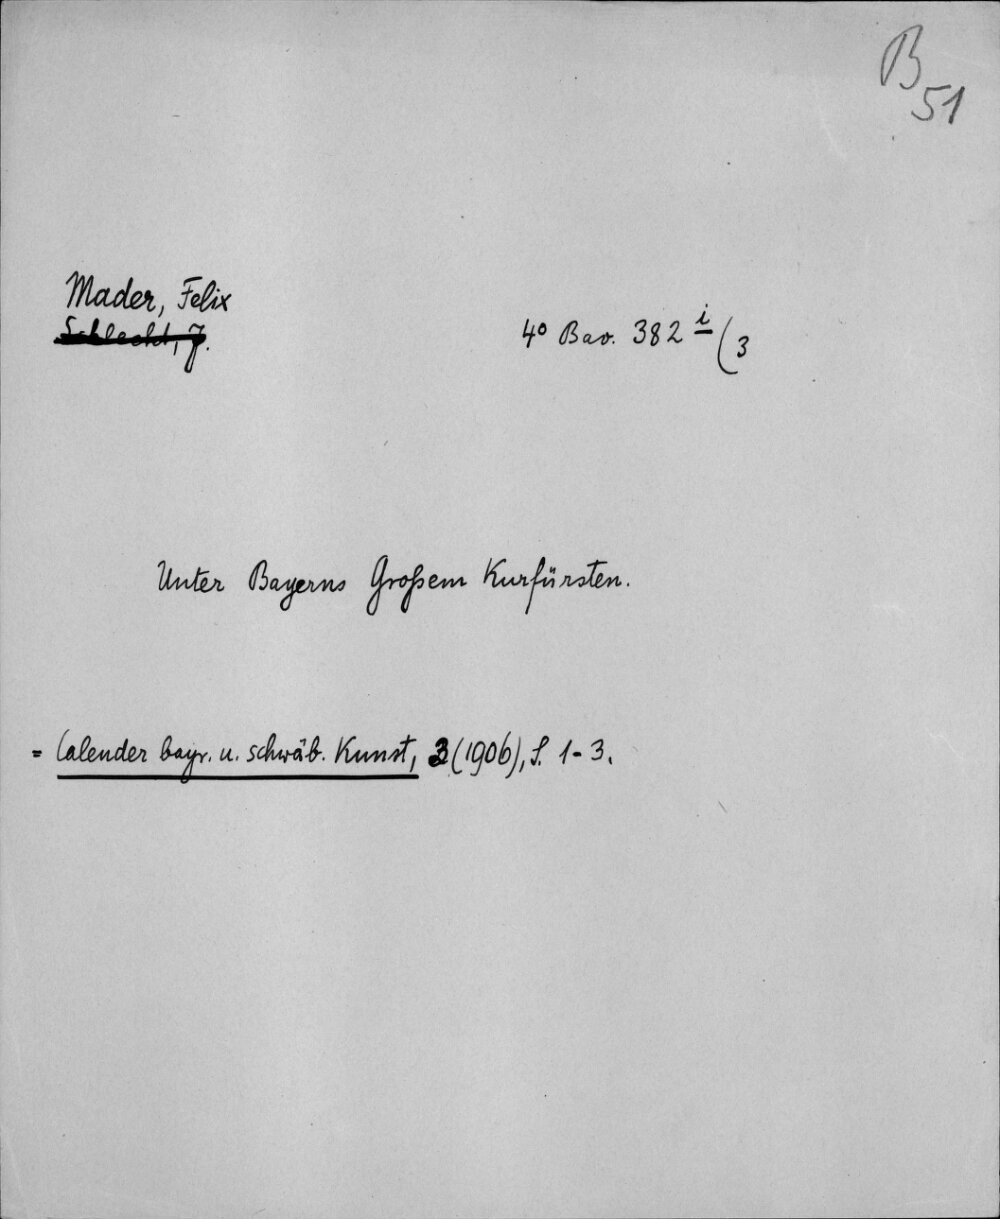 B
51
Mader, Felix
Schlecht, J.
4° Bav. 382 i (3
Unter Bayerns Großem Kurfürsten.
= Calender bayr. u. schwäb. Kunst, 3 (1906), S. 1-3.